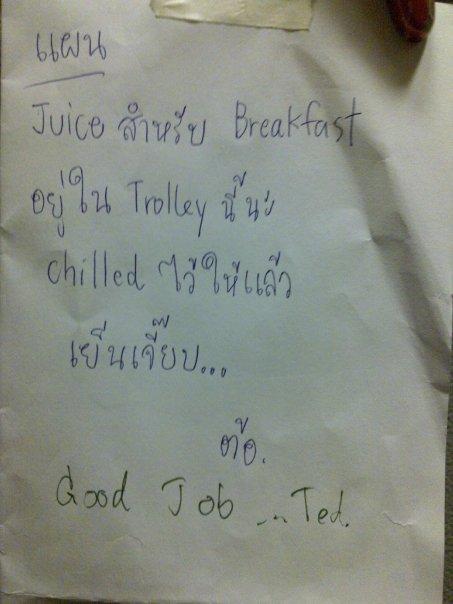 แผน
Juice สำหรับ Breakfast
อยู่ใน Trolley นี้นะ
chilled ไว้ให้แล้ว
เย็นเจี๊ยบ...
ต้อ.
Good Job ...Ted.